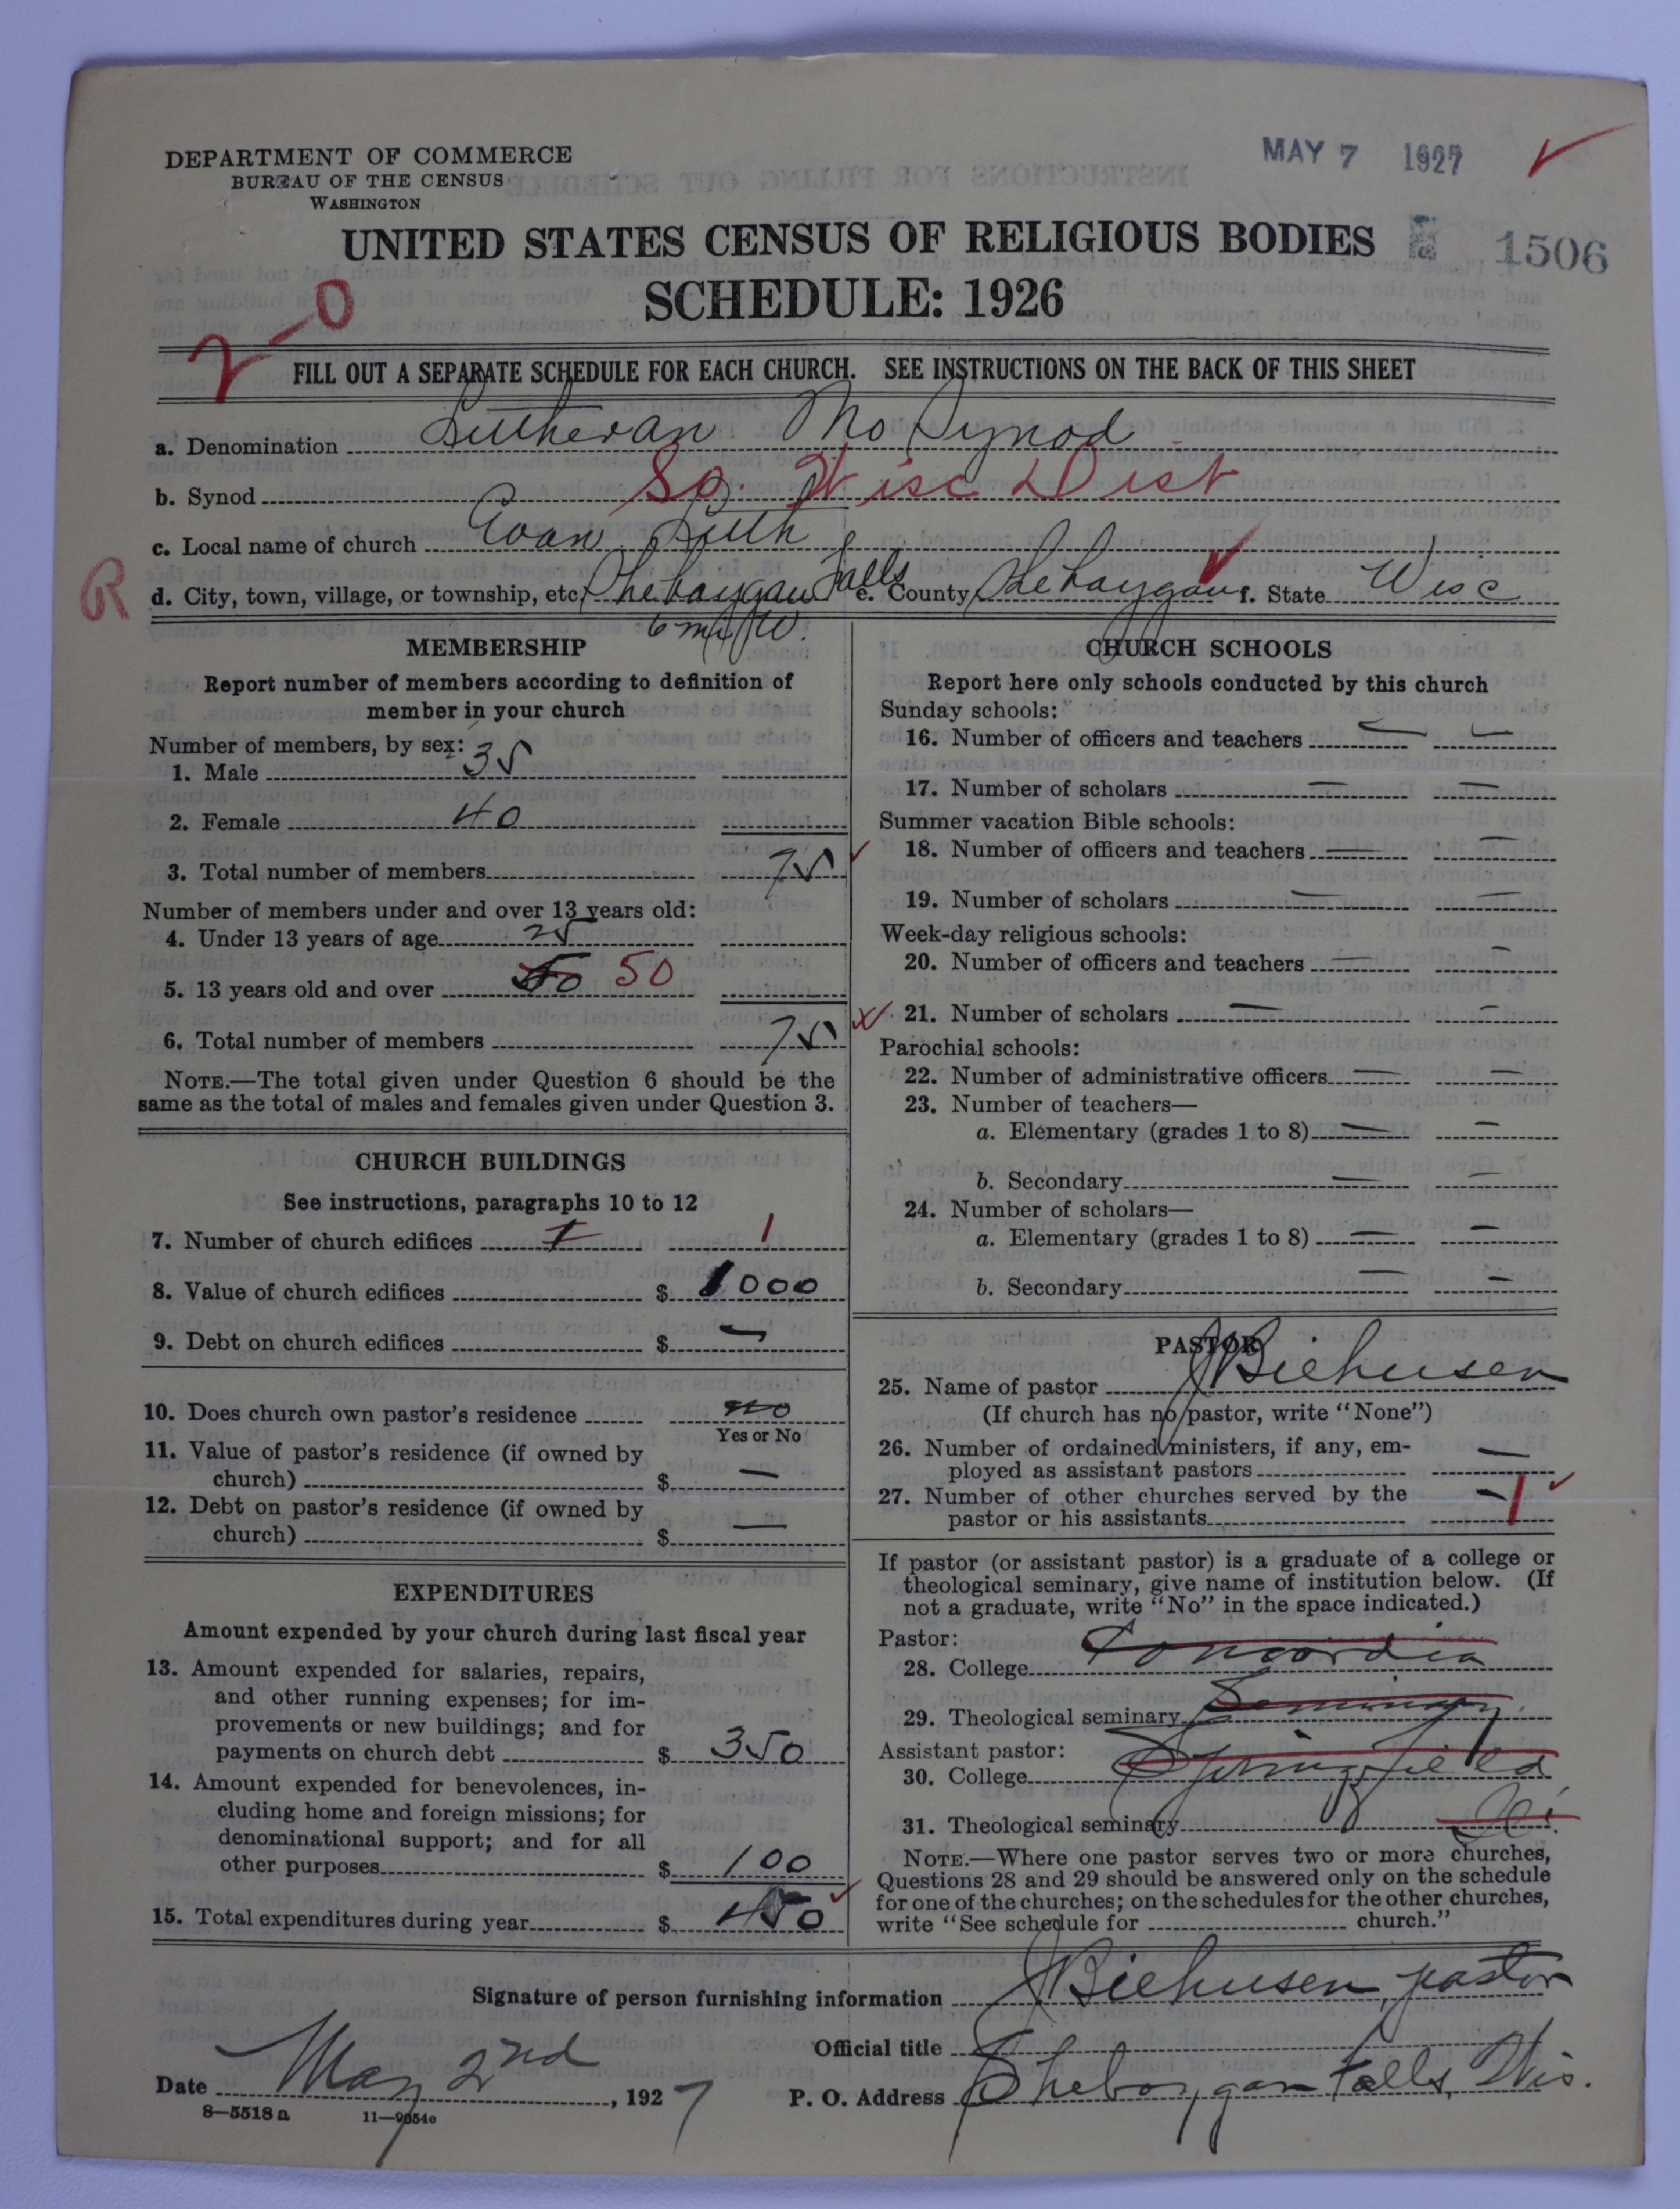 DEPARTMENT OF COMMERCE
BUREAU OF THE CENSUS
WASHINGTON
MAY 7 1927
UNITED STATES CENSUS OF RELIGIOUS BODIES
1506
SCHEDULE: 1926
2-0
FILL OUT A SEPARATE SCHEDULE FOR EACH CHURCH. SEE INSTRUCTIONS ON THE BACK OF THIS SHEET
a. Denomination Lutheran Mo Synod
b. Synod So. Wisc Dist
c. Local name of church Evan Luth
R
d. City, town, village, or township, etc. Sheboygan Falls e. County Sheboygan f. State Wisc
6 mi W.
MEMBERSHIP
Report number of members according to definition of
member in your church
Number of members, by sex:
1. Male 35
2. Female 40
3. Total number of members 75
Number of members under and over 13 years old:
4. Under 13 years of age 25
5. 13 years old and over 50 50
6. Total number of members 75
NOTE.—The total given under Question 6 should be the
same as the total of males and females given under Question 3.
CHURCH BUILDINGS
See instructions, paragraphs 10 to 12
7. Number of church edifices 1 1
8. Value of church edifices $ 1000
9. Debt on church edifices $ —
10. Does church own pastor's residence no
Yes or No
11. Value of pastor's residence (if owned by
church) $ —
12. Debt on pastor's residence (if owned by
church) $ —
EXPENDITURES
Amount expended by your church during last fiscal year
13. Amount expended for salaries, repairs,
and other running expenses; for im-
provements or new buildings; and for
payments on church debt $ 350
14. Amount expended for benevolences, in-
cluding home and foreign missions; for
denominational support; and for all
other purposes $ 100
15. Total expenditures during year $ 450
CHURCH SCHOOLS
Report here only schools conducted by this church
Sunday schools:
16. Number of officers and teachers — —
17. Number of scholars — —
Summer vacation Bible schools:
18. Number of officers and teachers — —
19. Number of scholars — —
Week-day religious schools:
20. Number of officers and teachers — —
21. Number of scholars — —
Parochial schools:
22. Number of administrative officers — —
23. Number of teachers—
a. Elementary (grades 1 to 8) — —
b. Secondary — —
24. Number of scholars—
a. Elementary (grades 1 to 8) — —
b. Secondary — —
PASTOR
25. Name of pastor J Biehusen
(If church has no pastor, write "None")
26. Number of ordained ministers, if any, em-
ployed as assistant pastors —
27. Number of other churches served by the
pastor or his assistants — 1
If pastor (or assistant pastor) is a graduate of a college or
theological seminary, give name of institution below. (If
not a graduate, write "No" in the space indicated.)
Pastor:
28. College Concordia
29. Theological seminary Seminary,
Assistant pastor:
30. College Springfield
31. Theological seminary Ill.
NOTE.—Where one pastor serves two or more churches,
Questions 28 and 29 should be answered only on the schedule
for one of the churches; on the schedules for the other churches,
write "See schedule for church."
Signature of person furnishing information J Biehusen, pastor
Official title
Date May 2nd, 1927 P. O. Address Sheboygan Falls, Wis.
8—5518a 11—9054c